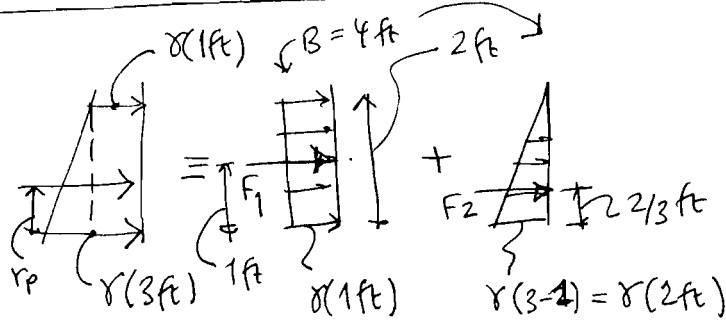 γ(1ft)
B = 4ft
2ft
≡
+
F1
F2
2/3 ft
rp
γ(3ft)
1ft
γ(1ft)
γ(3-1) = γ(2ft)